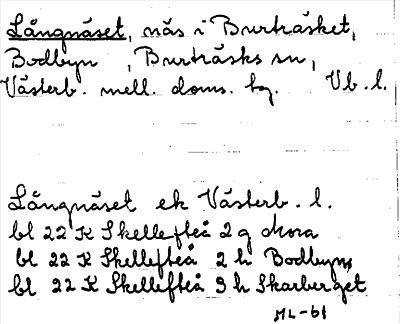 Långnäset, näs i Burträsket,
Bodbyn , Burträsks sn,
Västerb. mell. doms. tg. Vb. l.
Långnäset ek Västerb. l.
bl 22 K Skellefteå 2 g Mora
bl 22 K Skellefteå 2 h Bodbyn,
bl 22 K Skellefteå 3 h Skarberget
ML-61